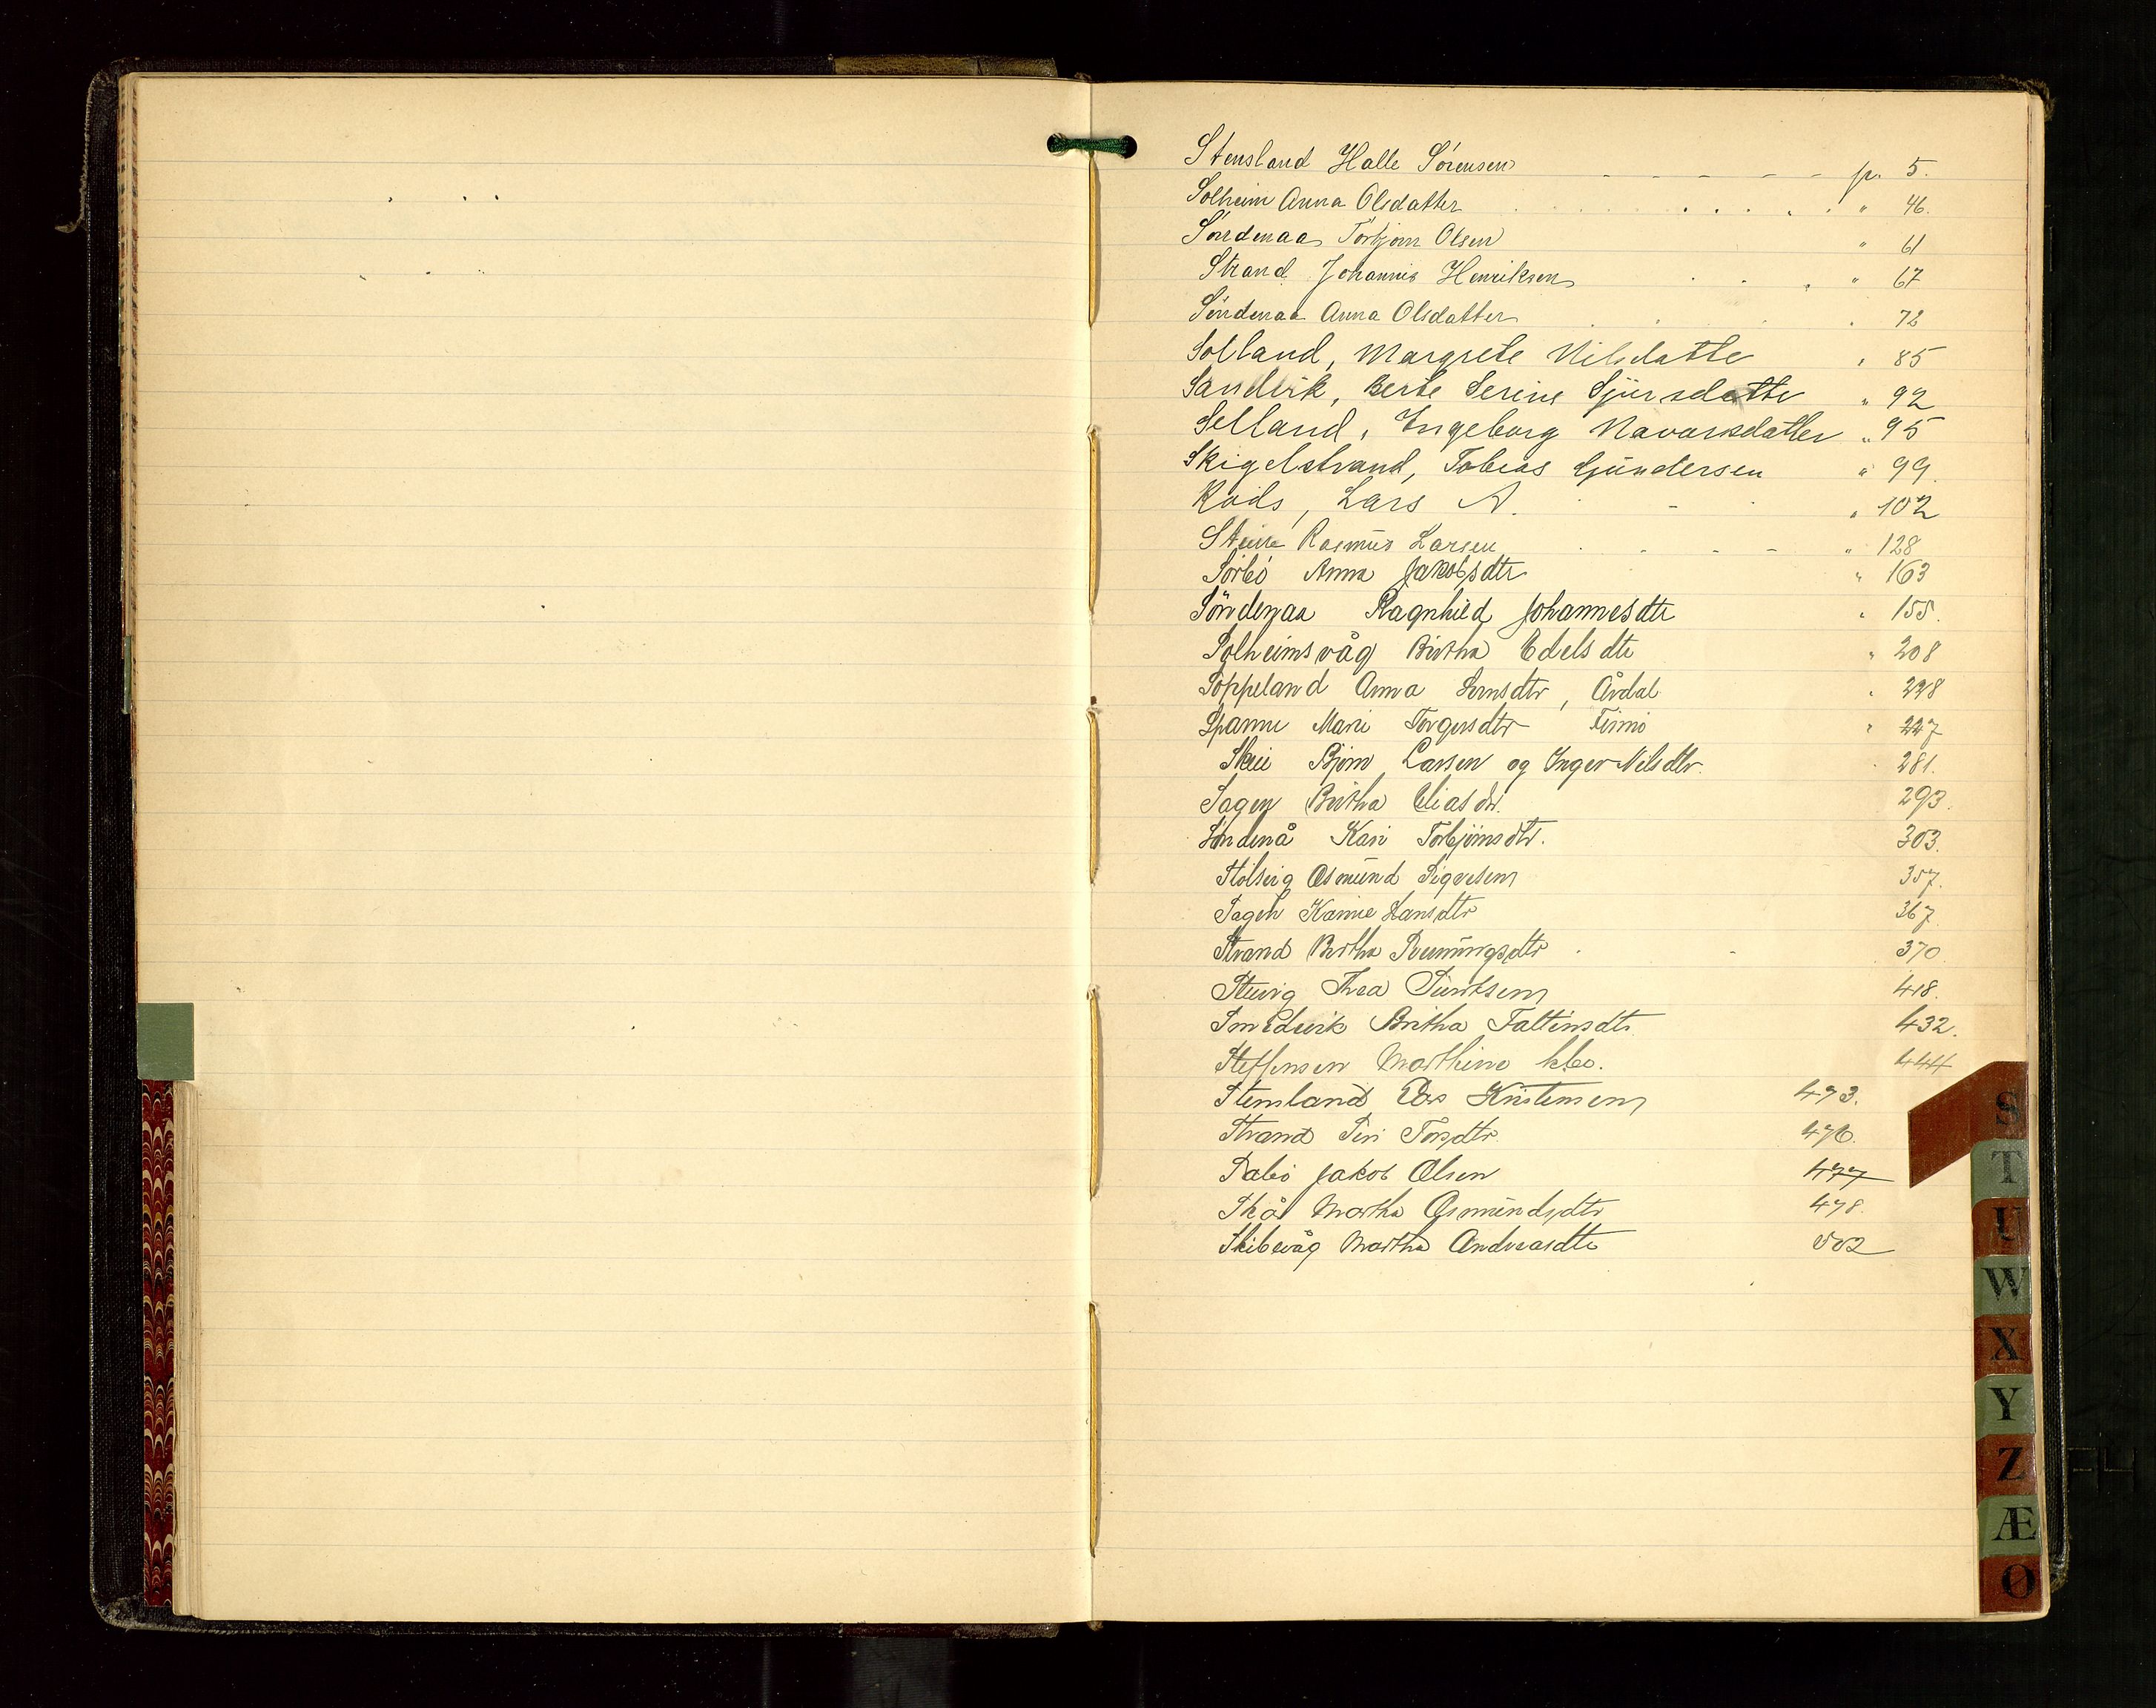 Stensland Halle Sörensen - - - - - p. 5.
Solheim Anna Olsdatter . . . . . . " 46.
Söndenaa Torbjörn Olsen " 61
Strand Johannis Henriksen . . . " 67
Söndenaa Anna Olsdatter . . . 72
Solland, Margrete Nilsdatte " 85
Sandvik, Berte Serine Sjursdatte " 92
Selland, Ingeborg Navarsdatter " 95
Skigelstrand, Tobias Gundersen " 99.
Lars A. - " 102
Rasmus Larsen - - - " 128
Sörbö Anna Jakobsdtr " 163
Söndenaa Ragnhild Johannesdtr " 155.
Solheimsvåg Birtha Edelsdtr " 208
Söppeland Anna , Årdal " 228
Spanne Mari Torgersdtr " 227
Skeie Bjørn Larsen og Inger Nilsdtr. 281.
Sagen Britha Eliasdtr. 293.
Söndenå Kari Torbjörnsdtr. 303.
Stölsvig Osmund Sigvesen 357.
Sagen Hansdtr 367
Strand Birtha 370
Thea 418.
Smedsvik Britha Faltinsdtr 432.
Steffensen Marthine 444
Stensland Kristensen 473.
Strand Siri Torsdtr. 476.
Salbö Jakob Olsen 477
Skår Martha Osmundsdtr 478.
Skibevåg Martha Andreasdtr 502
S
T
U
W
X
Y
Z
Æ
Ø